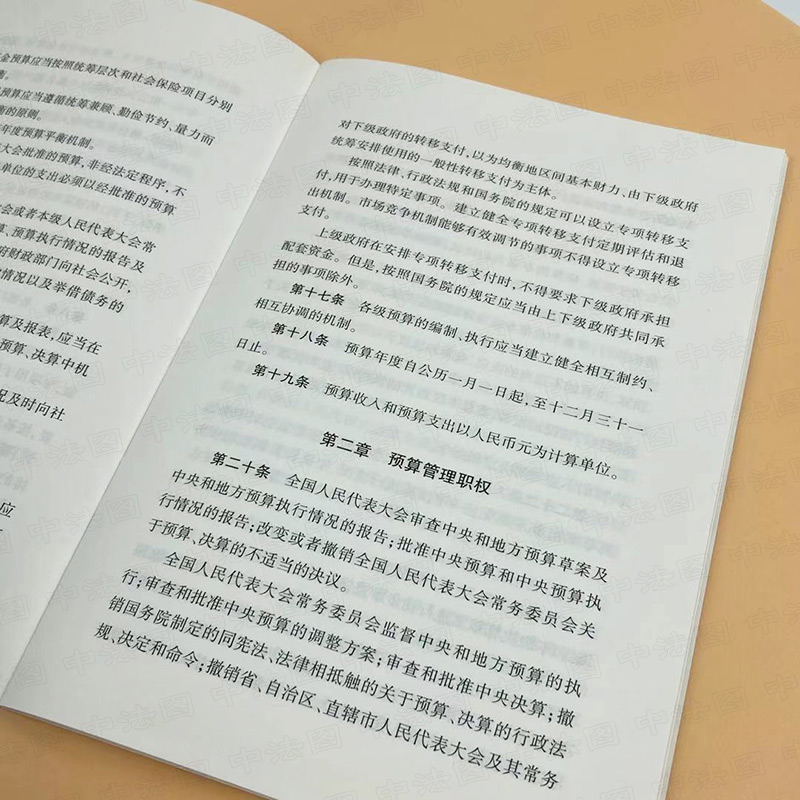 金预算应当按照统筹层次和社会保险项目分别
衡。
预算应当遵循统筹兼顾、勤俭节约、量力而
衡的原则。
年度预算平衡机制。
大会批准的预算,非经法定程序,不
单位的支出必须以经批准的预算
会或者本级人民代表大会常
算、预算执行情况的报告及
府财政部门向社会公开,
情况以及举借债务的
算及报表,应当在
预算、决算中机
况及时向社
应
的
对下级政府的转移支付,以为均衡地区间基本财力、由下级政府
统筹安排使用的一般性转移支付为主体。
按照法律、行政法规和国务院的规定可以设立专项转移支
付,用于办理特定事项。建立健全专项转移支付定期评估和退
出机制。市场竞争机制能够有效调节的事项不得设立专项转移
支付。
上级政府在安排专项转移支付时,不得要求下级政府承担
配套资金。但是,按照国务院的规定应当由上下级政府共同承
担的事项除外。
第十七条 各级预算的编制、执行应当建立健全相互制约、
相互协调的机制。
第十八条 预算年度自公历一月一日起,至十二月三十一
日止。
第十九条 预算收入和预算支出以人民币元为计算单位。
第二章 预算管理职权
第二十条 全国人民代表大会审查中央和地方预算草案及
中央和地方预算执行情况的报告;批准中央预算和中央预算执
行情况的报告;改变或者撤销全国人民代表大会常务委员会关
于预算、决算的不适当的决议。
全国人民代表大会常务委员会监督中央和地方预算的执
行;审查和批准中央预算的调整方案;审查和批准中央决算;撤
销国务院制定的同宪法、法律相抵触的关于预算、决算的行政法
规、决定和命令;撤销省、自治区、直辖市人民代表大会及其常务
中法图